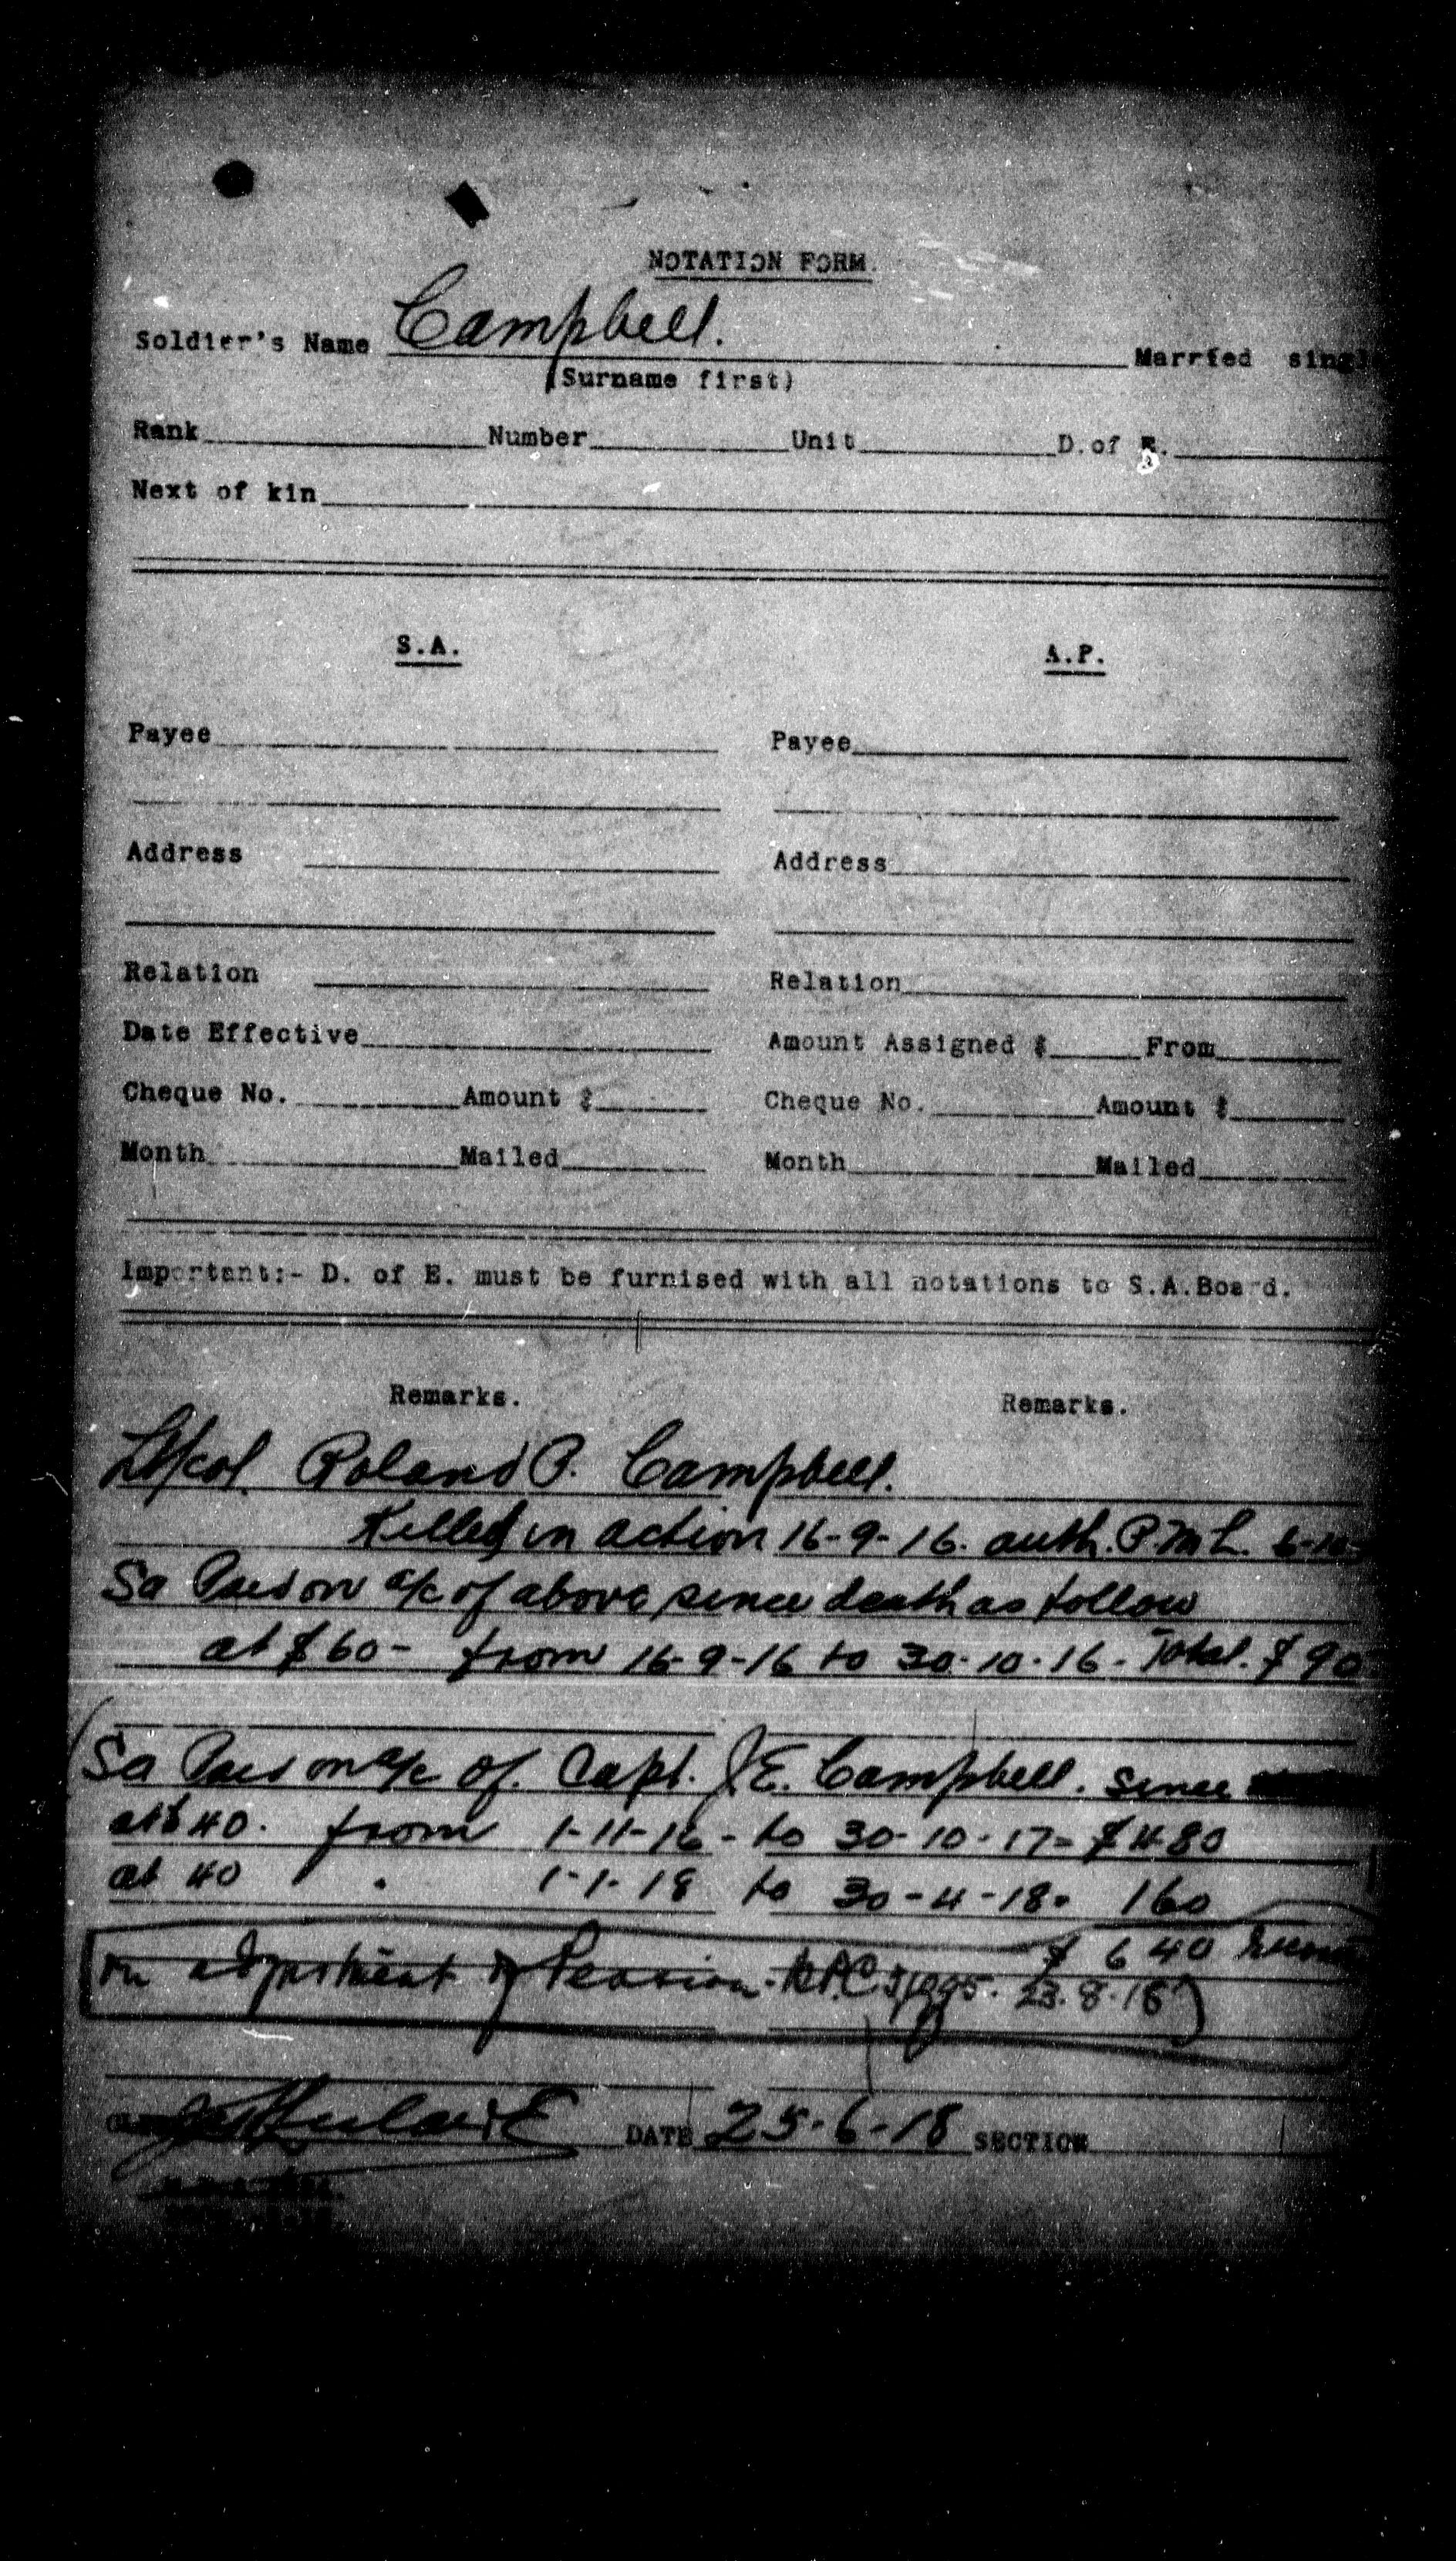 NOTATION FORM.
Soldier's Name Campbell. Married singl
(Surname first)
Rank Number Unit D.of E.
Next of kin
S.A. A.P.
Payee Payee
Address Address
Relation Relation
Date Effective Amount Assigned $ From
Cheque No. Amount $ Cheque No. Amount $
Month Mailed Month Mailed
Important:- D. of E. must be furnised with all notations to S.A.Board.
Remarks. Remarks.
Lt/Col Roland P. Campbell.
Killed in action 16-9-16. auth. P.M.L. 6-10-
Sa Paid on a/c of above since death as follow
at $60- from 16-9-16 to 30-10-16- Total. $90
Sa Paid on a/c of. Capt. J E. Campbell. since
at $40. from 1-11-16- to 30-10-17= $480
at 40 . 1-1-18 to 30-4-18. 160
$ 640
on adjustment of Pension. 23.8.18)
DATE 25-6-18 SECTION